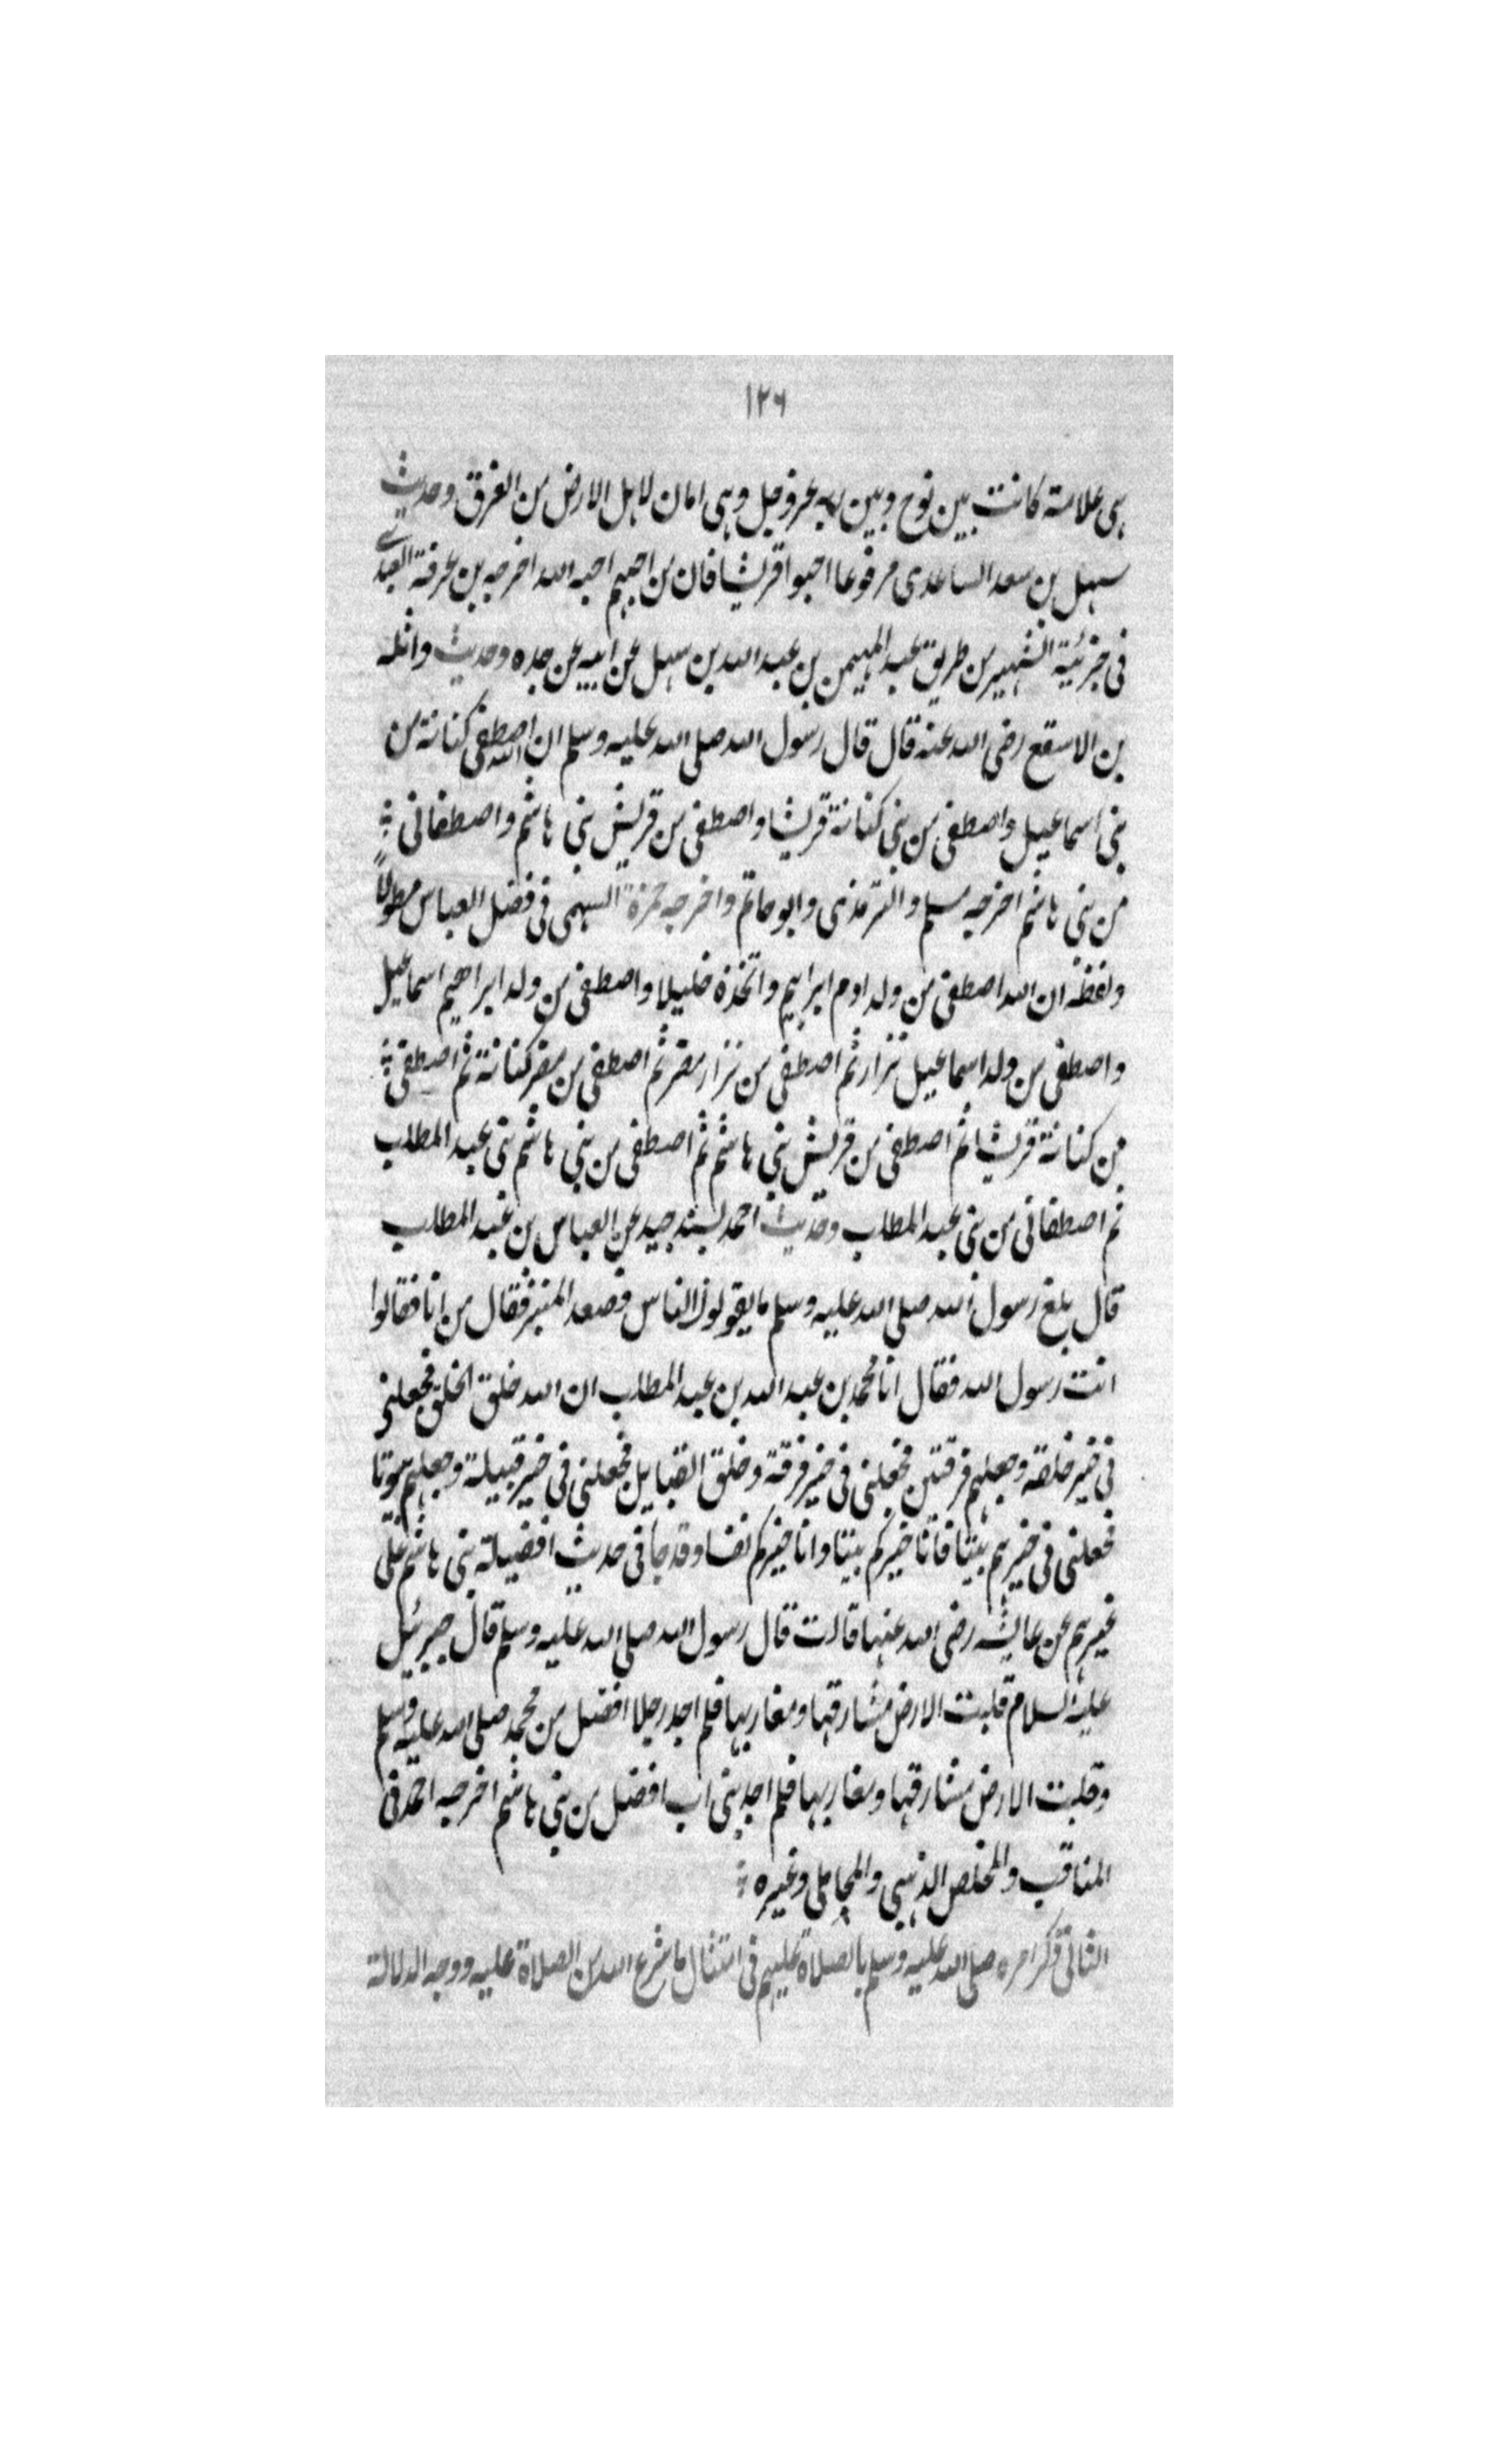 ١٢٦
هى علامة كانت بين نوح وبين ربه عزوجل وهى امان لاهل الارض من الغرق وحديث
سهل بن سعد الساعدى مرفوعا احبوا قريشا فان من احبهم احبه الله اخرجه بن عرفة العبدى
فى جزئية الشهير من طريق عبد المهيمن بن عبد الله بن سهل عن ابيه عن جده وحديث واثلة
بن الاسقع رضى الله عنه قال قال رسول الله صلى الله عليه وسلم ان الله اصطفى كنانة من
بنى اسماعيل واصطفى من بنى كنانة قريشا واصطفى من قريش بنى هاشم واصطفانى
من بنى هاشم اخرجه مسلم والترمذى وابو حاتم واخرجه حمزة السهمى فى فضل العباس مطولاً
ولفظه ان الله اصطفى من ولد ادم ابراهيم واتخذه خليلا واصطفى من ولد ابراهيم اسماعيل
واصطفى من ولد اسماعيل نزار ثم اصطفى من نزار مضر ثم اصطفى من مضر كنانة ثم اصطفى
من كنانة قريشا ثم اصطفى من قريش بنى هاشم ثم اصطفى من بنى هاشم بنى عبد المطلب
ثم اصطفانى من بنى عبد المطلب وحديث احمد بسند جيد عن العباس بن عبد المطلب
قال بلغ رسول الله صلى الله عليه وسلم ما يقولون الناس فصعد المنبر فقال من انا فقالوا
انت رسول الله فقال انا محمد بن عبد الله بن عبد المطلب ان الله خلق الخلق فجعلنى
فى خير خلقه وجعلهم فرقتين فجعلنى فى خير فرقة وخلق القبايل فجعلنى فى خير قبيلة وجعلهم بيوتا
فجعلنى فى خيرهم بيتا فانا خيركم بيتا وانا خيركم نفسا وقد جا فى حديث افضيلة بنى هاشم على
غيرهم عن عايشه رضى الله عنها قالت قال رسول الله صلى الله عليه وسلم قال جبرئيل
عليه السلام قلبت الارض مشارقها ومغاربها فلم اجد رجلا افضل من محمد صلى الله عليه وسلم
وقلبت الارض مشارقها ومغاربها فلم اجد بنى اب افضل من بنى هاشم اخرجه احمد فى
المناقب والمخلص الذهبى والمحاملى وغيره
الثالث ذكر امره صلى الله عليه وسلم بالصلاة عليهم فى امتثال ما شرع الله من الصلاة عليه ووجه الدلالة